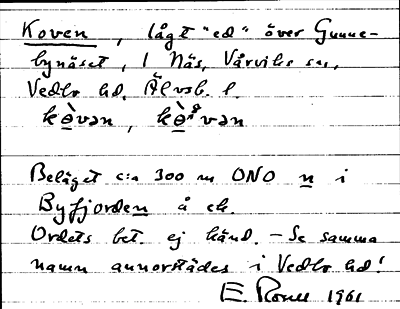 Koven, lågt "ed" över Gunne-
bynäset, 1 Näs, Vårviks sn,
Vedbo hd. Älvsb. l.
kèvən, kèvən
Beläget c:a 300 m ONO n i
Byfjorden å ek.
Ordets bet. ej känd. – Se samma
namn annorstädes i Vedbo hd!
E. 1961